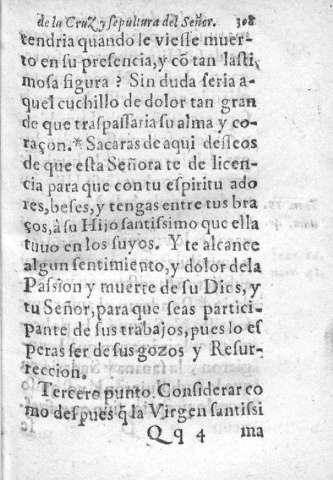 de la Cruz y sepultura del Señor. 308
tendria quando le viesse muer-
to en su presencia, y cõ tan lasti-
mosa figura? Sin duda seria a-
quel cuchillo de dolor tan gran
de que traspassaria su alma y co-
raçon.* Sacaras de aqui desseos
de que esta Señora te de licen-
cia para que con tu espiritu ado
res, beses, y tengas entre tus bra
ços, à su Hijo santissimo que ella
tuuo en los suyos. Y te alcance
algun sentimiento, y dolor dela
Passion y muerte de su Dios, y
tu Señor, para que seas partici-
pante de sus trabajos, pues lo es
peras ser de sus gozos y Resur-
reccion.
Tercero punto. Considerar co
mo despues q̃ la Virgen santissi
Qq 4 ma